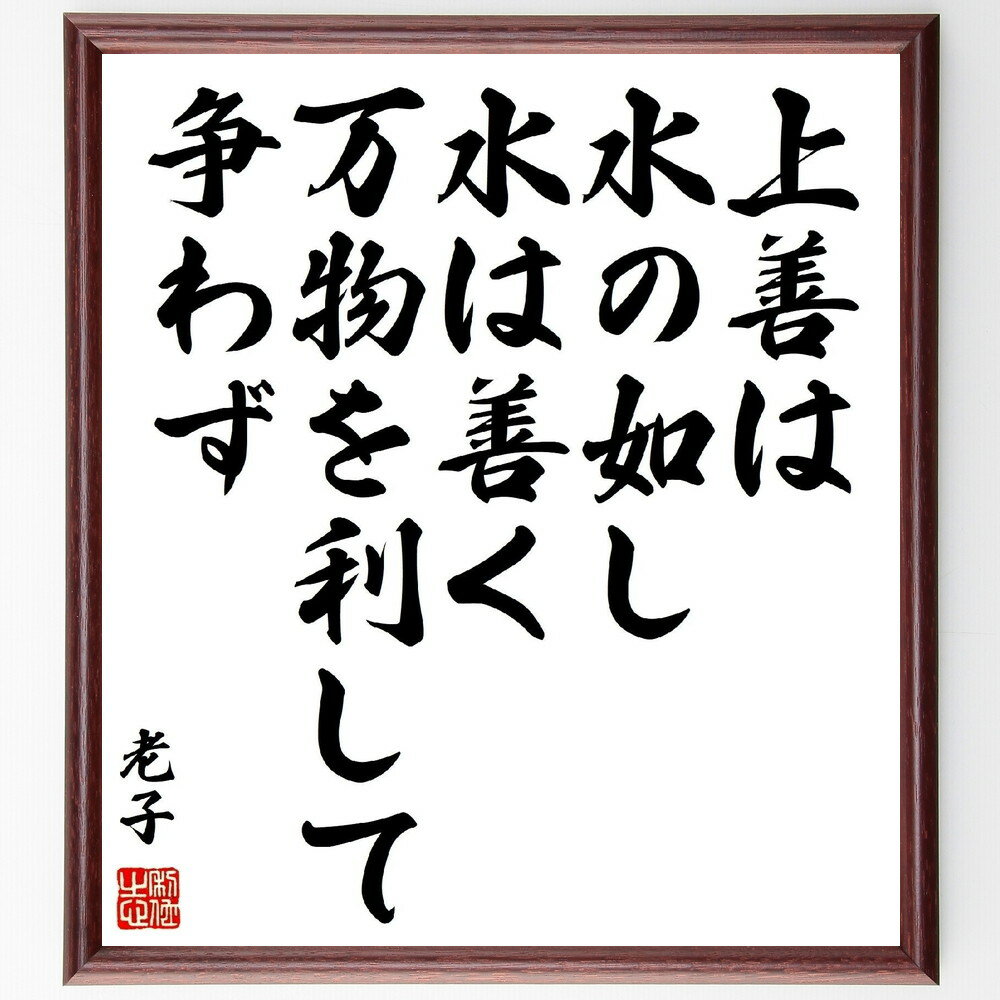 上善は
水の如し
水は善く
万物を利して
争わず
老子